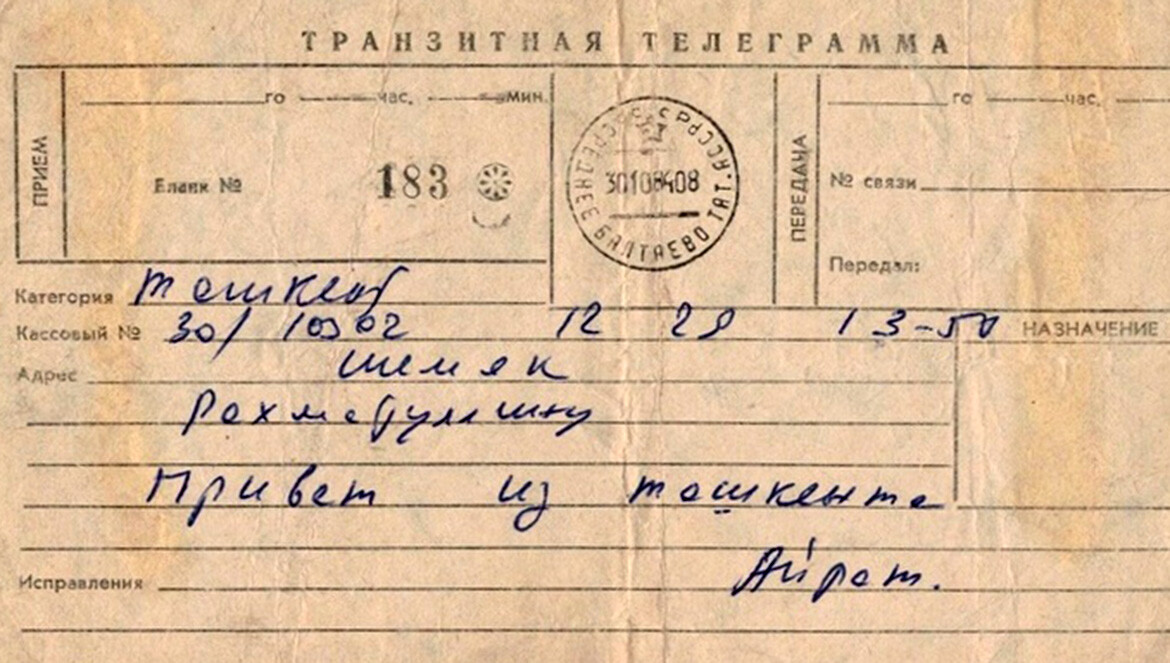 ТРАНЗИТНАЯ ТЕЛЕГРАММА
ПРИЕМ
го час. мин.
Бланк № 183
СРЕДНЕЕ БАЛТАЕВО ТАТ. АССР
30108408
ПЕРЕДАЧА
го час.
№ связи
Передал:
Категория Ташкент
Кассовый № 30/ 10302 12 29 13-50 НАЗНАЧЕНИЕ
Адрес шемяк
Рахматуллину
Привет из ташкента
Айрат.
Исправления